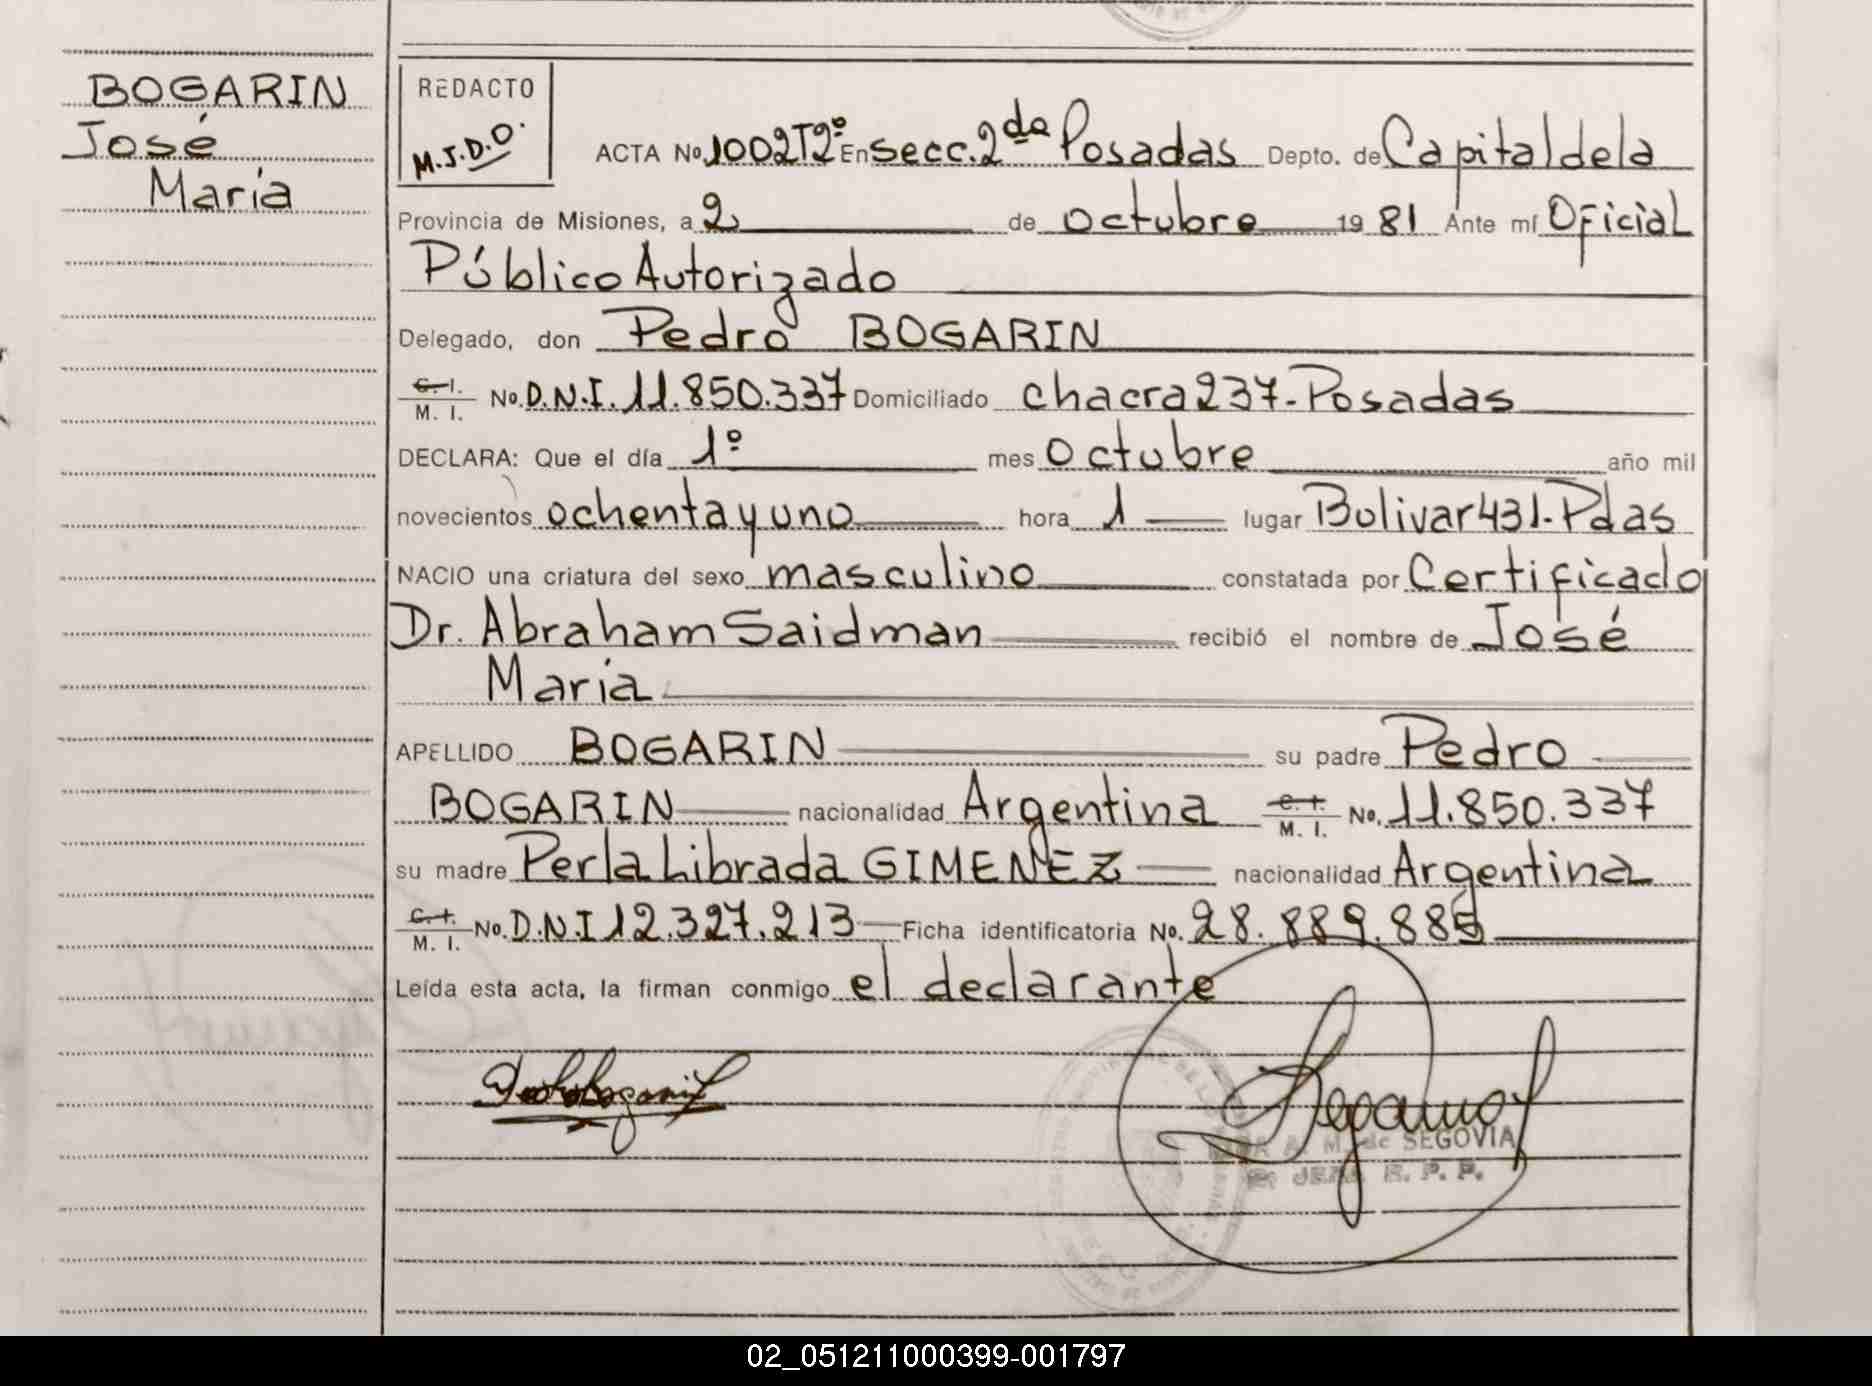 BOGARIN
José
María
REDACTO
M.J.D.O.
ACTA No. 1002 T2º En Secc. 2da Posadas Depto. de Capital de la
Provincia de Misiones, a 2 de octubre 19 81 Ante mí Oficial
Público Autorizado
Delegado, don Pedro BOGARIN
C. I.
M. I. No. D.N.I. 11.850.337 Domiciliado chacra 237-Posadas
DECLARA: Que el día 1º mes octubre año mil
novecientos ochenta y uno hora 1 lugar Bolivar 431-Pdas
NACIO una criatura del sexo masculino constatada por Certificado
Dr. Abraham Saidman recibió el nombre de José
María
APELLIDO BOGARIN su padre Pedro
BOGARIN nacionalidad Argentina C. I.
M. I. No. 11.850.337
su madre Perla Librada GIMENEZ nacionalidad Argentina
C. I.
M. I. No. D.N.I 12.327.213 Ficha identificatoria No. 28.889.885
Leída esta acta, la firman conmigo el declarante
M. de SEGOVIA
JEFA E. P. P.
02_051211000399-001797